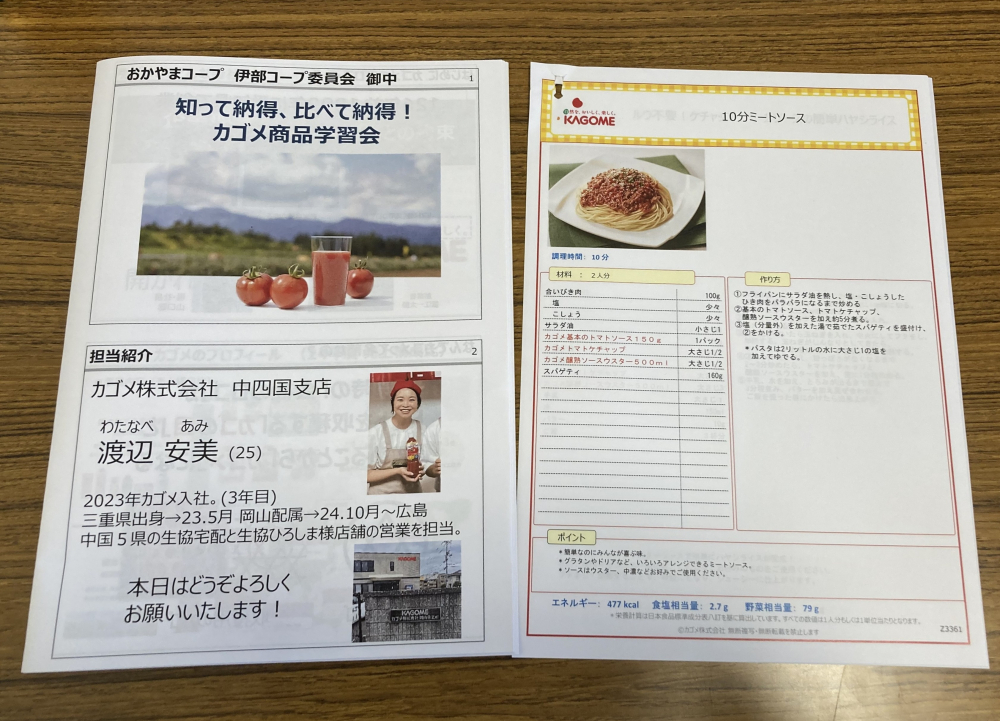 おかやまコープ 伊部コープ委員会 御中
1
知って納得、比べて納得！
カゴメ商品学習会
担当紹介
2
カゴメ株式会社 中四国支店
わたなべ あみ
渡辺 安美 (25)
2023年カゴメ入社。(3年目)
三重県出身→23.5月 岡山配属→24.10月～広島
中国５県の生協宅配と生協ひろしま様店舗の営業を担当。
本日はどうぞよろしく
お願いいたします！
KAGOME
KAGOME
自然を、おいしく、楽しく。
KAGOME
10分ミートソース
調理時間： 10 分
材料 ： 2人分
合いびき肉 100g
塩 少々
こしょう 少々
サラダ油 小さじ1
カゴメ基本のトマトソース１５０ｇ 1パック
カゴメトマトケチャップ 大さじ1/2
カゴメ醸熟ソースウスター５００ｍｌ 大さじ1/2
スパゲティ 160g
作り方
①フライパンにサラダ油を熱し、塩・こしょうした
ひき肉をパラパラになるまで炒める
②基本のトマトソース、トマトケチャップ、
醸熟ソースウスターを加え約5分煮る。
③塩（分量外）を加えた湯で茹でたスパゲティを盛付け、
②をかける。
＊パスタは2リットルの水に大さじ1の塩を
加えてゆでる。
ポイント
＊簡単なのにみんなが喜ぶ味。
＊グラタンやドリアなど、いろいろアレンジできるミートソース。
＊ソースはウスター、中濃などお好みでご使用ください。
エネルギー： 477 kcal 食塩相当量： 2.7 g 野菜相当量： 79 g
＊栄養計算は日本食品標準成分表八訂を基に算出しています。すべての数値は1人分もしくは1単位当たりとなります。
©カゴメ株式会社 無断複写・無断転載を禁止します
Z3361